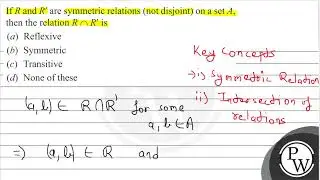 If R and R' are symmetric relations (not disjoint) on a set A,
then the relation R ∩ R' is
(a) Reflexive
(b) Symmetric
(c) Transitive
(d) None of these
Key Concepts
→ i) Symmetric Relation
ii) Intersection of
relations
(a,b) ∈ R∩R' for some
a, b ∈ A
⇒ (a,b) ∈ R and
PW